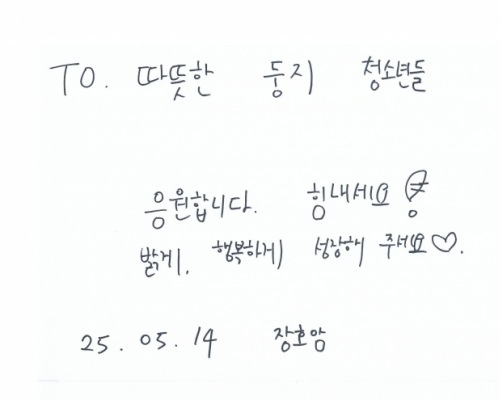 TO. 따뜻한 둥지 청소년들
응원합니다. 힘내세요!
밝게, 행복하게 성장해 주세요♡.
25. 05. 14 장호암